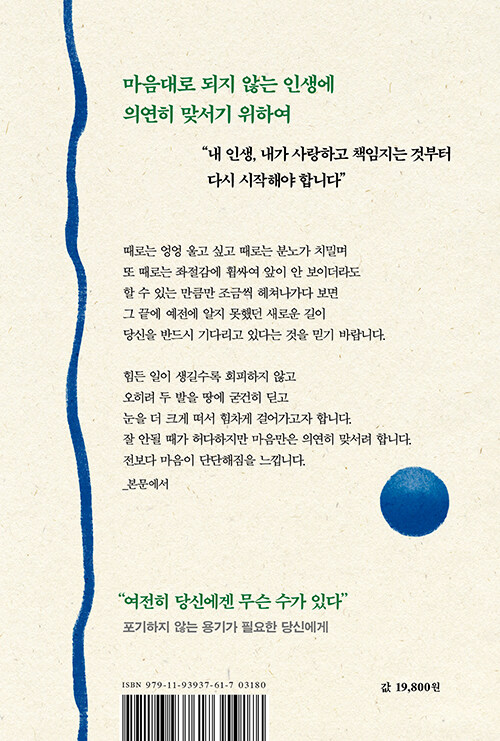 마음대로 되지 않는 인생에
의연히 맞서기 위하여
“내 인생, 내가 사랑하고 책임지는 것부터
다시 시작해야 합니다”
때로는 엉엉 울고 싶고 때로는 분노가 치밀며
또 때로는 좌절감에 휩싸여 앞이 안 보이더라도
할 수 있는 만큼만 조금씩 헤쳐나가다 보면
그 끝에 예전에 알지 못했던 새로운 길이
당신을 반드시 기다리고 있다는 것을 믿기 바랍니다.
힘든 일이 생길수록 회피하지 않고
오히려 두 발을 땅에 굳건히 딛고
눈을 더 크게 떠서 힘차게 걸어가고자 합니다.
잘 안될 때가 허다하지만 마음만은 의연히 맞서려 합니다.
전보다 마음이 단단해짐을 느낍니다.
_본문에서
“여전히 당신에겐 무슨 수가 있다”
포기하지 않는 용기가 필요한 당신에게
ISBN 979-11-93937-61-7 03180
값 19,800원